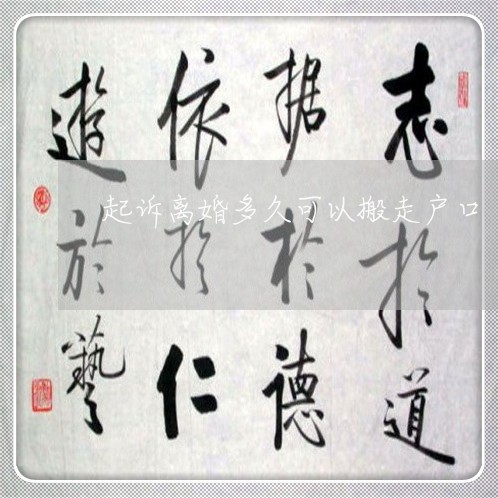 志於道
据於德
依於仁
遊於藝
起诉离婚多久可以搬走户口